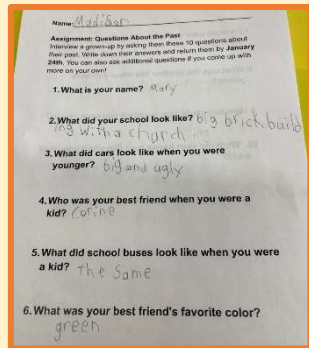 Name: Madison
Assignment: Questions About the Past
Interview a grown-up by asking them these 10 questions about
their past. Write down their answers and return them by January
24th. You can also ask additional questions if you come up with
more on your own!
1. What is your name? Mary
2. What did your school look like? big brick build
ing with a church
3. What did cars look like when you were
younger? big and ugly
4. Who was your best friend when you were a
kid? Corine
5. What did school buses look like when you were
a kid? The Same
6. What was your best friend's favorite color?
green